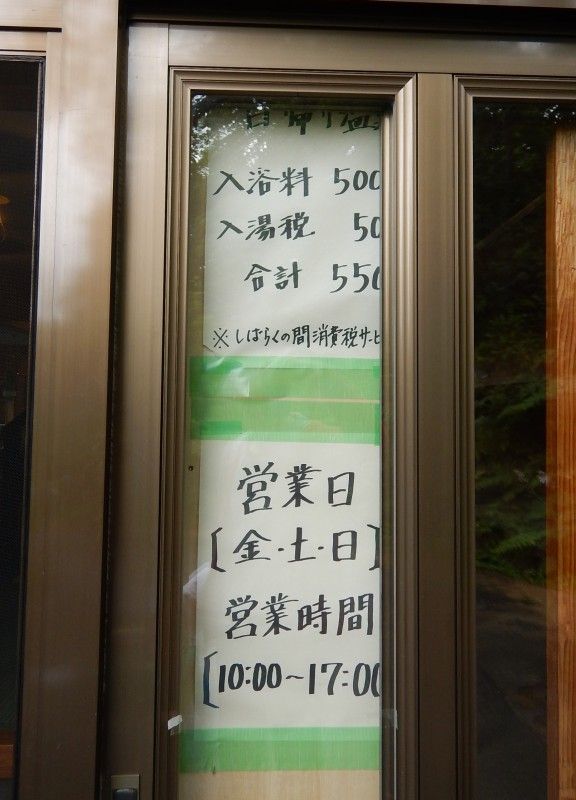 日帰り温
入浴料 500
入湯税 50
合計 550
※しばらくの間消費税サービ
営業日
[金・土・日]
営業時間
[10:00～17:00